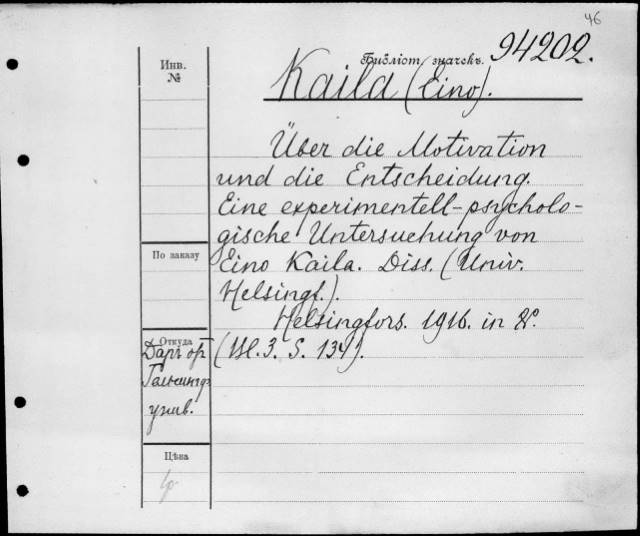 46
Библіот. значекъ. 94202.
Инв. №
Kaila (Eino).
Über die Motivation
und die Entscheidung.
Eine experimentell-psycholo-
gische Untersuchung von
По заказу
Eino Kaila. Diss. (Univ.
Helsingf.).
Helsingfors. 1916. in 8º.
Откуда
Даръ от
(Bl. 3. S. 134).
Гельсингф.
унив.
Цѣна